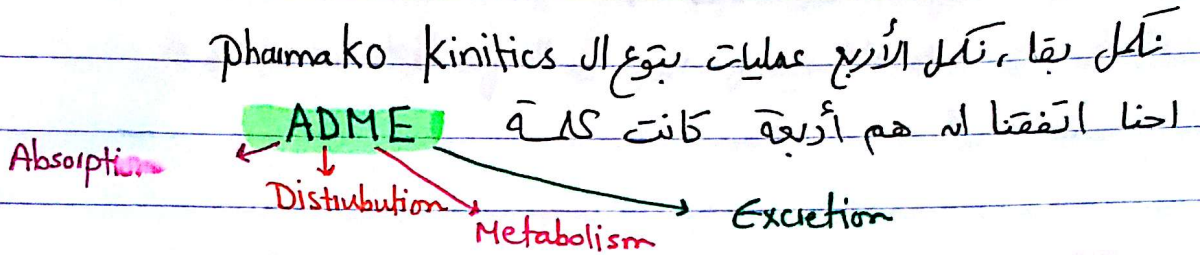 نكمل بقا، نكمل الأربع عمليات بتوع ال Pharmako Kinitics
احنا اتفقنا انه هم أربعة كانت كلمة ADME
Absorption
Distribution
Metabolism
Excretion